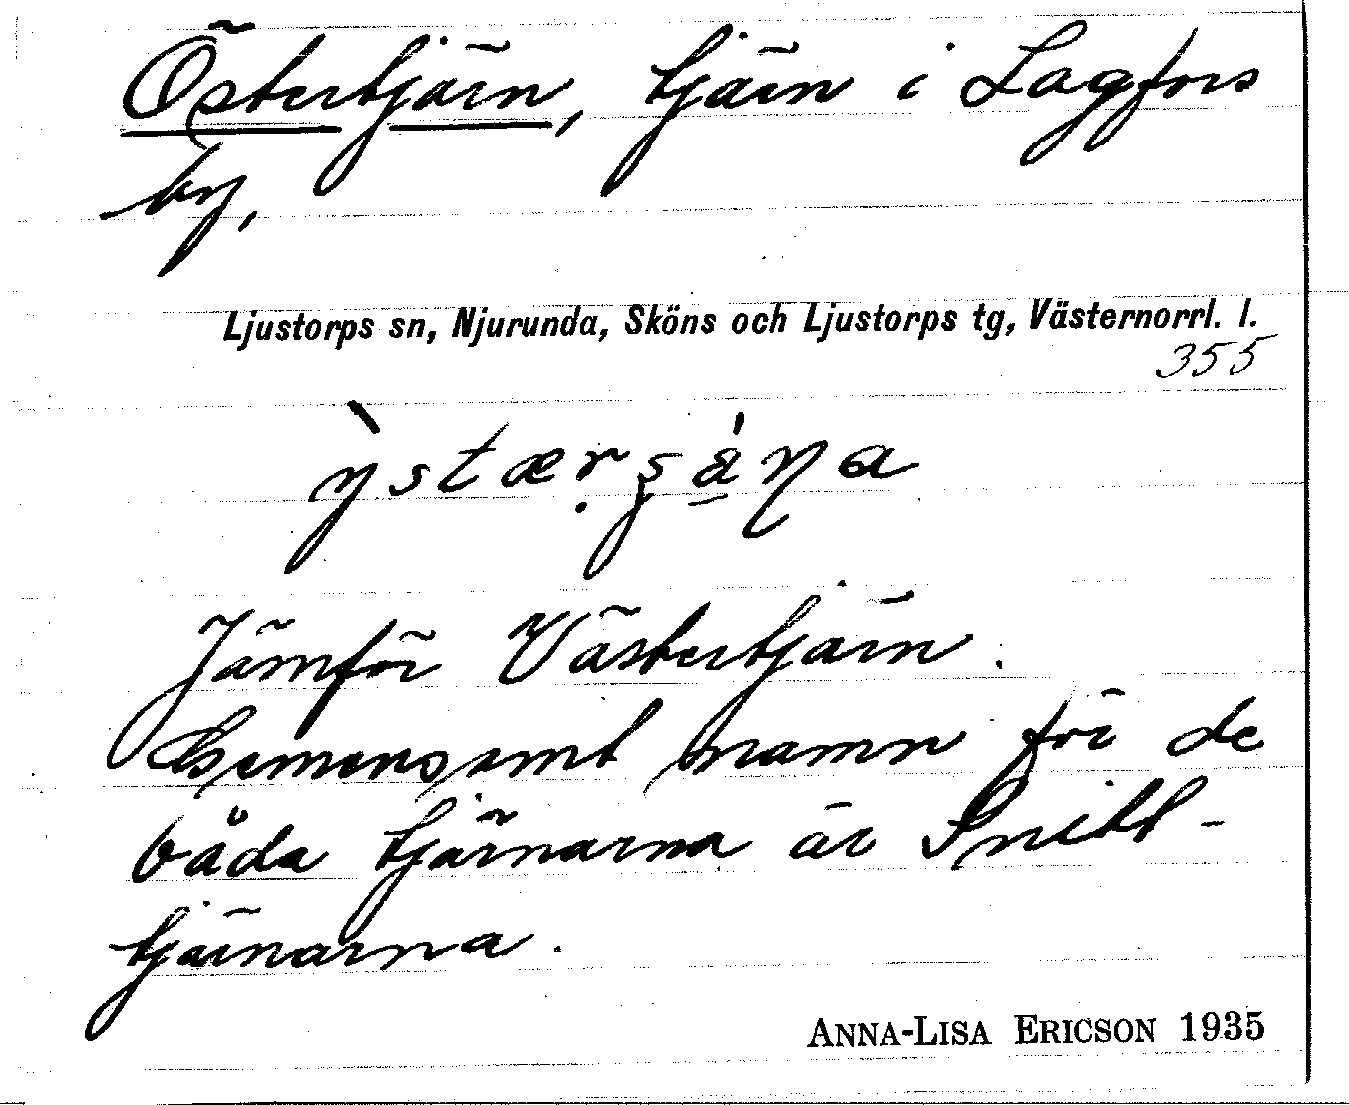 Östertjärn, tjärn i Lagfors
by,
Ljustorps sn, Njurunda, Sköns och Ljustorps tg, Västernorrl. l.
355
Jämför Västertjärn.
Gemensamt namn för de
båda tjärnarna är
tjärnarna.
ANNA-LISA ERICSON 1935